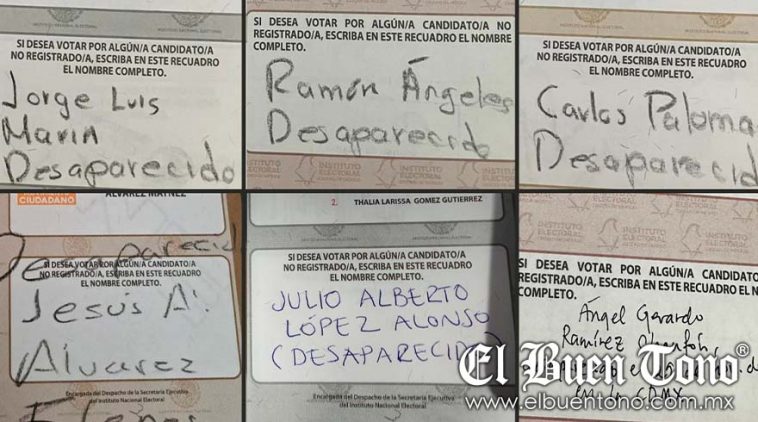 SI DESEA VOTAR POR ALGÚN/A CANDIDATO/A
NO REGISTRADO/A, ESCRIBA EN ESTE RECUADRO
EL NOMBRE COMPLETO.
Jorge Luis
Marin
Desaparecido
SI DESEA VOTAR POR ALGÚN/A CANDIDATO/A NO
REGISTRADO/A, ESCRIBA EN ESTE RECUADRO EL NOMBRE
COMPLETO.
Ramón Ángeles
Desaparecido
INSTITUTO
ELECTORAL
SI DESEA VOTAR POR ALGÚN/A CANDIDATO/A
NO REGISTRADO/A, ESCRIBA EN ESTE RECUADRO
EL NOMBRE COMPLETO.
Carlos Paloma
Desaparecido
CIUDADANO
ÁLVAREZ MÁYNEZ
SI DESEA VOTAR POR ALGÚN/A CANDIDATO/A
NO REGISTRADO/A, ESCRIBA EN ESTE RECUADRO
EL NOMBRE COMPLETO.
Jesús A.
Alvarez
Encargada del Despacho de la Secretaría Ejecutiva
del Instituto Nacional Electoral
2. THALIA LARISSA GOMEZ GUTIERREZ
SI DESEA VOTAR POR ALGÚN/A CANDIDATO/A
NO REGISTRADO/A, ESCRIBA EN ESTE RECUADRO
EL NOMBRE COMPLETO.
JULIO ALBERTO
LÓPEZ ALONSO
(DESAPARECIDO)
Encargada del Despacho de la Secretaría Ejecutiva
del Instituto Nacional Electoral
INSTITUTO
ELECTORAL
SI DESEA VOTAR POR ALGÚN/A CANDIDATO
REGISTRADO/A, ESCRIBA EN ESTE RECUADRO EL
COMPLETO.
Ángel Gerardo
Ramírez
en la CDMX
El Buen Tono®
www.elbuentono.com.mx